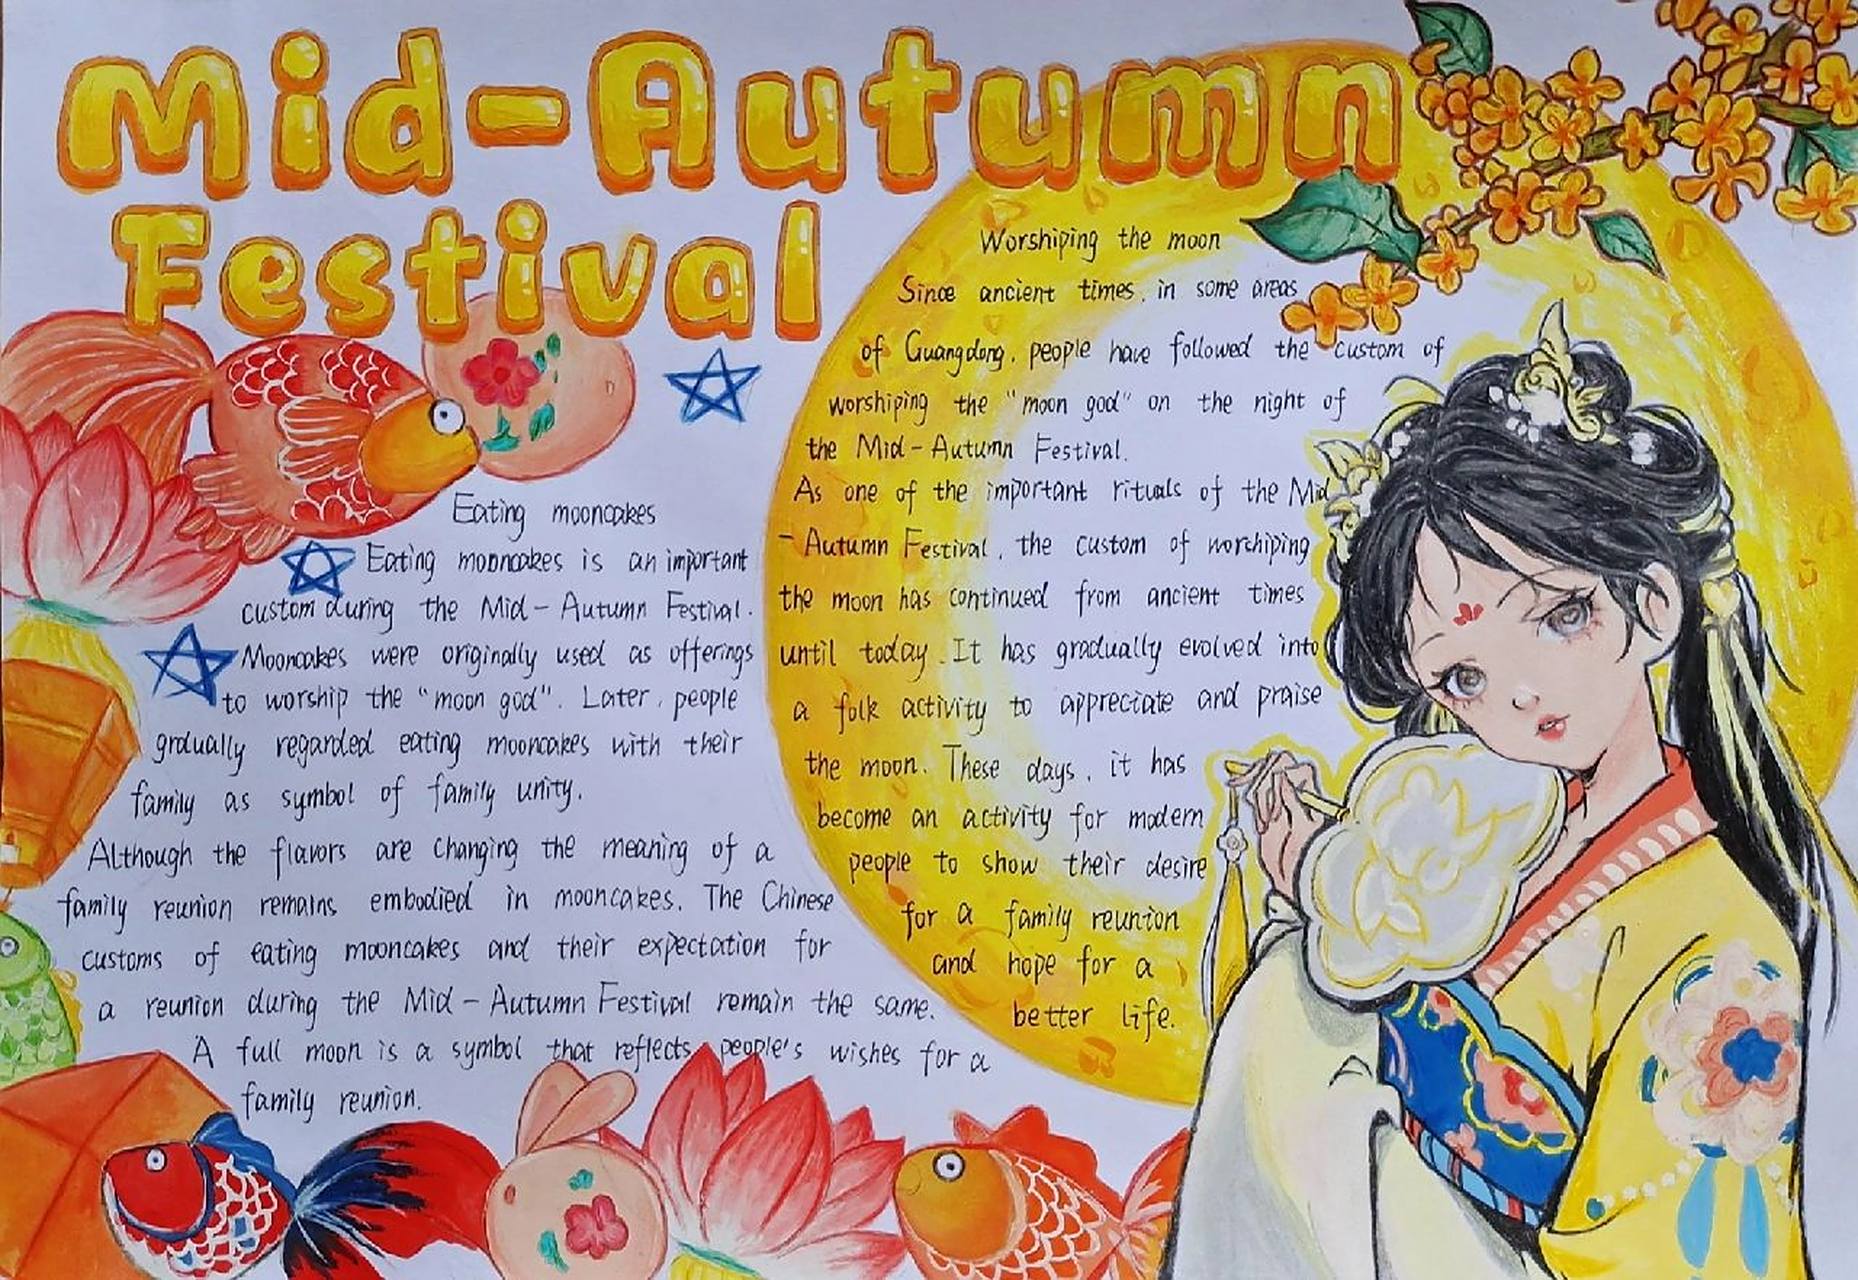 Mid-Autumn
Festival
Eating mooncakes
Eating mooncakes is an important
custom during the Mid-Autumn Festival.
Mooncakes were originally used as offerings
to worship the "moon god". Later, people
gradually regarded eating mooncakes with their
family as symbol of family unity.
Although the flavors are changing the meaning of a
family reunion remains embodied in mooncakes. The Chinese
customs of eating mooncakes and their expectation for
a reunion during the Mid-Autumn Festival remain the same.
A full moon is a symbol that reflects people's wishes for a
family reunion.
Worshiping the moon
Since ancient times, in some areas
of Guangdong, people have followed the custom of
worshiping the "moon god" on the night of
the Mid-Autumn Festival.
As one of the important rituals of the Mid
-Autumn Festival, the custom of worshiping
the moon has continued from ancient times
until today. It has gradually evolved into
a folk activity to appreciate and praise
the moon. These days, it has
become an activity for modern
people to show their desire
for a family reunion
and hope for a
better life.